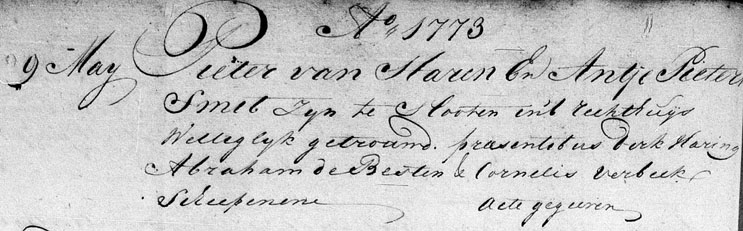 Aº 1773
9 May Pieter van Haren En Antje Pieters
Smit Zyn te Slooten in't rechthuys
Wetteglyk getrouwd. præsentibus Dirk Haring
Abraham de Besten & Cornelis Verbeek
Scheepenene
Acte gegeeven